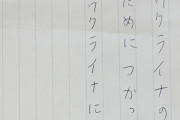 ウクライナの
ために つかっ
ウクライナに